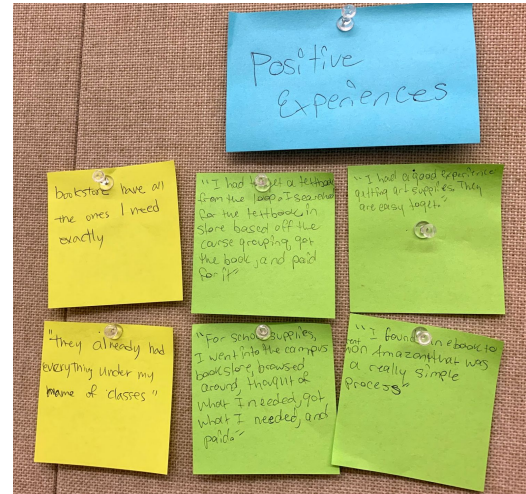 Positive
Experiences
bookstore have all
the ones I need
exactly
"I had to get a textbook
from the loop. I searched
for the textbook in
store based off the
course grouping, got
the book, and paid
for it"
"I had a good experience
getting art supplies. They
are easy to get."
"They already had
everything under my
name of classes"
"For school supplies,
I went into the campus
bookstore, browsed
around, thought of
what I needed, got
what I needed, and
paid."
"I found an ebook
on Amazon that was
a really simple
process"